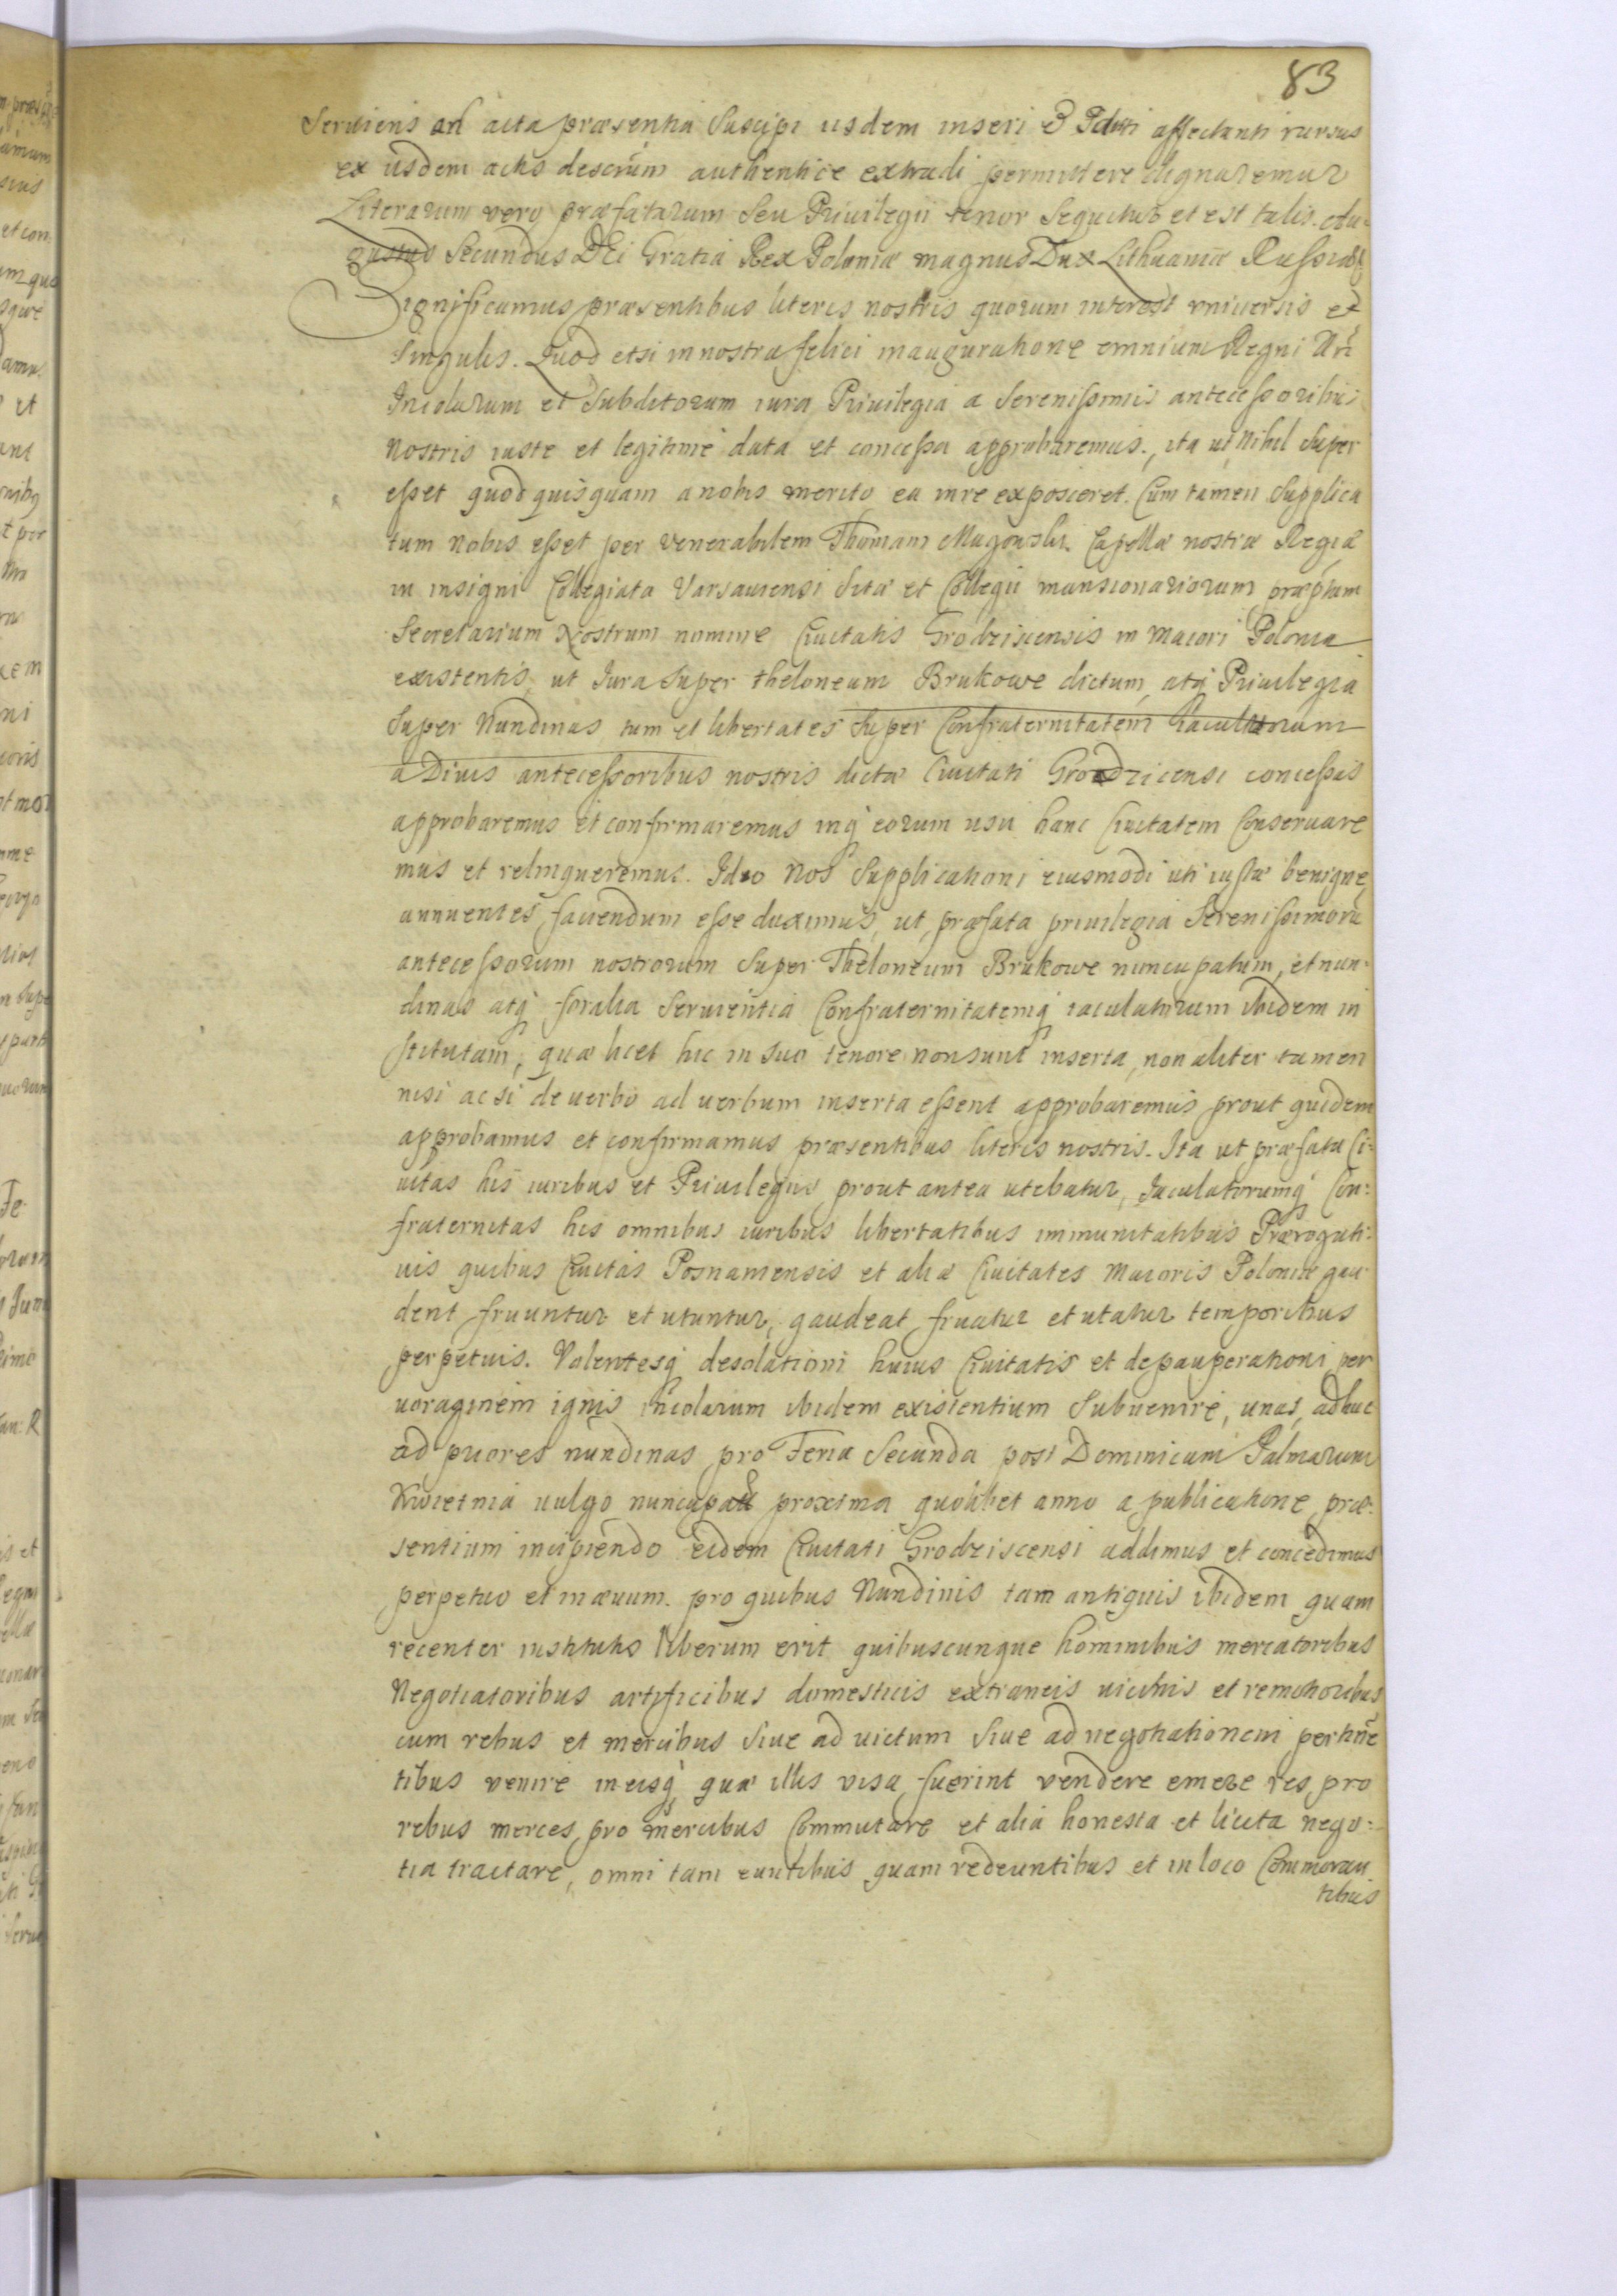 83
Seruiens ad acta præsentia Suscipi iisdem inseri & affectanti rursus
ex iisdem actis descriptum authentice extradi permittere dignaremur
Literarum vero præfatarum Seu Priuilegii tenor Sequitur et est talis. Au-
gustus Secundus DEi Gratia Rex Poloniæ magnus Dux Lithuaniæ Russiæ
Significamus præsentibus literis nostris quorum interest vniuersis et
Singulis. Quod etsi in nostra felici inauguratione omnium Regni Nri
Incolarum et Subditorum iura Priuilegia a Serenissimis antecessoribus
nostris iuste et legitime data et concessa approbaremus, ita ut nihil Super
esset quod quisquam a nobis merito ea in re exposceret. Cum tamen Supplica
tum nobis esset per venerabilem Thomam Capellæ nostræ Regiæ
in insigni Collegiata Varsauiensi Sitæ et Collegii mansionariorum præptum
Secretarium Nostrum nomine Ciuitatis Grodziscensis in Maiori Polonia
existentis, ut Iura Super theloneum Brukowe dictum atq Priuilegia
Super Nundinas tum et libertates Super Confraternitatem Iaculatorum
a Diuis antecessoribus nostris dictæ Ciuitati Grodzicensi concessis
approbaremus et confirmaremus inq eorum usu hanc Ciuitatem Conseruare
mus et relinqueremus. Ideo Nos Supplicationi eiusmodi uti iustæ benigne
annuentes, faciendum esse duximus, ut præfata priuilegia Serenissimorũ
antecessorum nostrorum Super Theloneum Brukowe nuncupatum, et nun-
dinas atq foralia Seruientia Confraternitatemq iaculatorum ibidem in
stitutam, quæ licet hic in Suo tenore non sunt inserta, non aliter tamen
nisi ac si de uerbo ad uerbum inserta essent approbaremus prout quidem
approbamus et confirmamus præsentibus literis nostris. Ita ut præfata Ci-
uitas his iuribus et Priuilegiis prout antea utebatur, Iaculatorumq Con:
fraternitas his omnibus iuribus libertatibus immunitatibus Prærogati:
uis quibus Ciuitas Posnaniensis et aliæ Ciuitates Maioris Poloniæ gau
dent fruuntur et utuntur, gaudeat fruatur et utatur temporibus
perpetuis. Volentesq desolationi huius Ciuitatis et depauperationi per
uoraginem ignis incolarum ibidem existentium Subuenire, unas adhuc
ad priores nundinas pro Feria Secunda post Dominicam Palmarum
Kwietnia uulgo nuncupatã proxima quolibet anno a publicatione præ-
sentium incipiendo eidem Ciuitati Grodziscensi addimus et concedimus
perpetuo et in æuum. pro quibus Nundinis tam antiquis ibidem quam
recenter institutis liberum erit quibuscunque hominibus mercatoribus
Negotiatoribus artificibus domesticis extraneis uicinis et remotioribus
cum rebus et mercibus Siue ad uictum Siue ad negotiationem pertinẽ
tibus venire in eisq quæ illis visa fuerint vendere emere res pro
rebus merces pro mercibus Commutare et alia honesta et licita nego:
tia tractare, omni tam euntibus quam redeuntibus et in loco Commoran
tibus